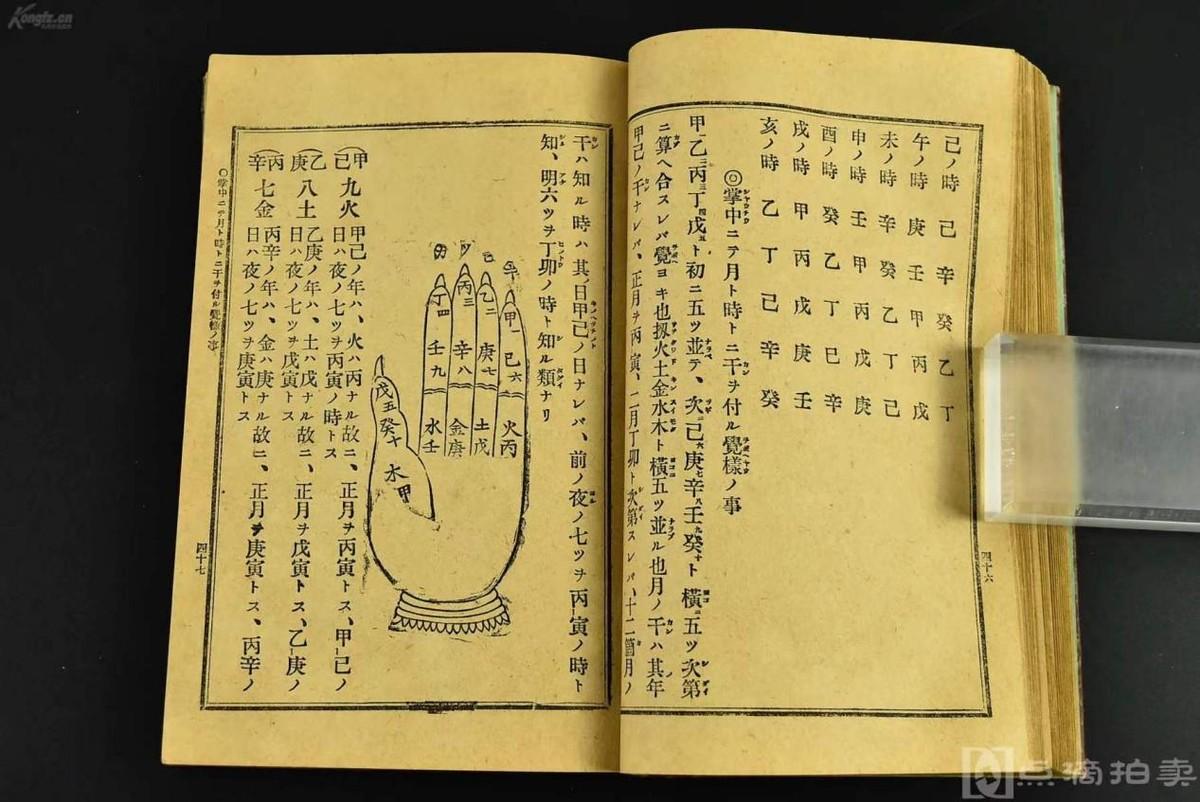 己ノ時 己 辛 癸 乙 丁
午ノ時 庚 壬 甲 丙 戊
未ノ時 辛 癸 乙 丁 己
申ノ時 壬 甲 丙 戊 庚
酉ノ時 癸 乙 丁 巳 辛
戌ノ時 甲 丙 戊 庚 壬
亥ノ時 乙 丁 己 辛 癸
◎掌中ニテ月ト時トニ干ヲ付ル覺樣ノ事
甲一乙二丙三丁四戊五ト初ニ五ツ並テ、次ニ己六庚七辛八壬九癸十ト橫ニ五ツ次第
ニ算ヘ合スレバ覺ヨキ也扨火土金水木ト橫五ツ並ル也月ノ干ハ其年
甲己ノ干ナレバ、正月ヲ丙寅、二月丁卯ト次第スレバ、十二箇月ノ
四十六
干ハ知ル時ハ其ノ日甲己ノ日ナレバ、前ノ夜ノ七ツヲ丙寅ノ時ト
知、明六ツヲ丁卯ノ時ト知ル類ナリ
甲一 己六 火丙
乙二 庚七 土戊
丙三 辛八 金庚
丁四 壬九 水壬
戊五 癸十 水甲
甲己 九火 甲己ノ年ハ、火ハ丙ナル故ニ、正月ヲ丙寅トス、甲己ノ
日ハ夜ノ七ツヲ丙寅ノ時トス
乙庚 八土 乙庚ノ年ハ、土ハ戊ナル故ニ、正月ヲ戊寅トス、乙庚ノ
日ハ夜ノ七ツヲ戊寅トス
丙辛 七金 丙辛ノ年ハ、金ハ庚ナル故ニ、正月ヲ庚寅トス、丙辛ノ
日ハ夜ノ七ツヲ庚寅トス
○掌中ニテ月ト時トニ干ヲ付ル覺樣ノ事
四十七
Kongfz.cn
点滴拍卖